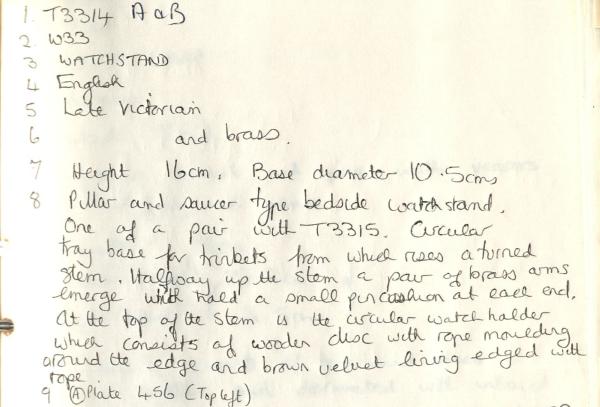 1. T3314 A & B
2. W33
3 WATCHSTAND
4 English
5 Late Victorian
6 and brass.
7 Height 16cm. Base diameter 10.5cms
8 Pillar and saucer type bedside watchstand.
One of a pair with T3315. Circular
tray base for trinkets from which rises a turned
stem. Halfway up the stem a pair of brass arms
emerge which hold a small pincushion at each end.
At the top of the stem is the circular watch holder
which consists of wooden disc with rope moulding
around the edge and brown velvet lining edged with
rope
9 (A) Plate 456 (Top left)